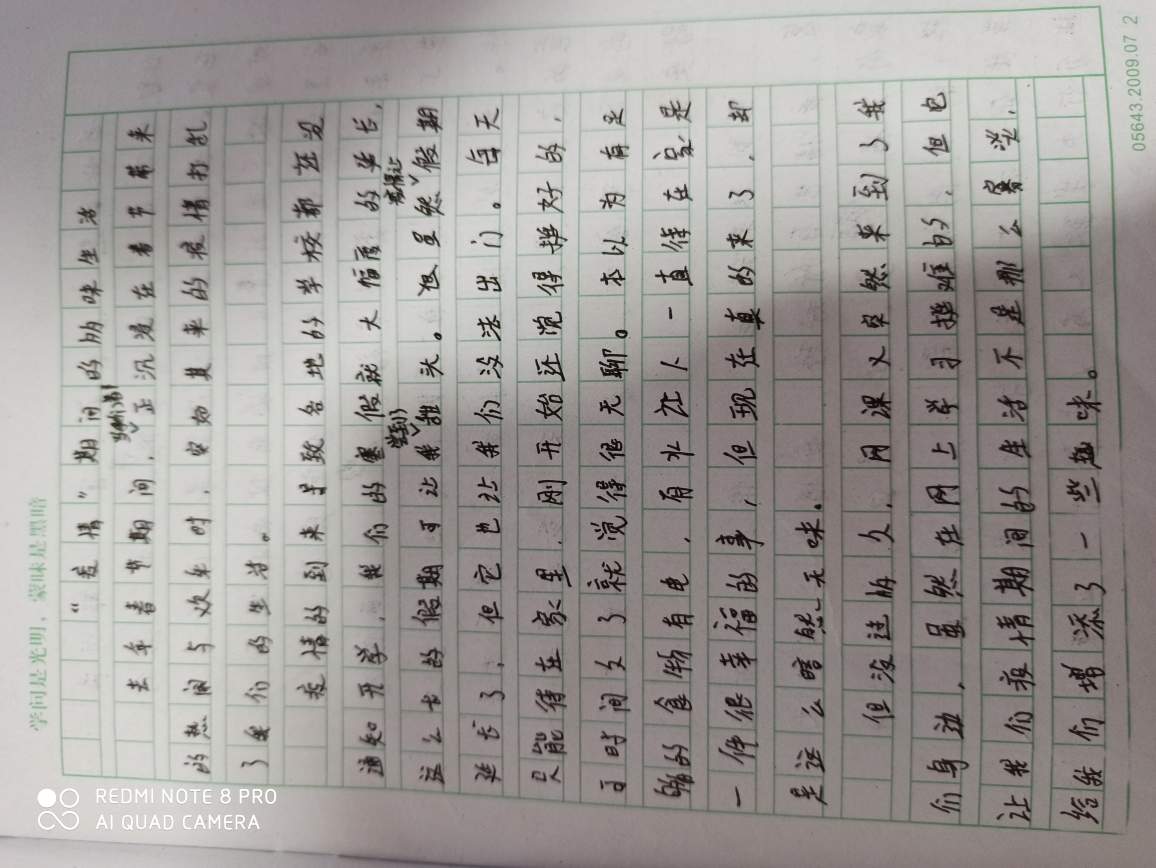 学问是光明，蒙昧是黑暗
“疫情”期间的购味生活
去年春节期间，正沉浸在春节带来
的热闹与欢乐时，突如其来的疫情打乱
了我们的生活。
疫情的到来导致各地的学校都还没
通知开学，我们的寒假就大幅度的延长，
这么长的假期可让我难头。但虽然假期
延长了，但它也让我们没法出门。每天
只能待在家里，刚开始还觉得挺好的，
可时间久了就觉得很无聊。本以为有足
够的食物有电，有水让人一直待在家是
一件很幸福的事，但现在真的来了，却
是这么的无味。
但没过多久，网课又突然来到了我
们身边，虽然在网上学习挺难的，但也
让我们疫情期间的生活不是那么寡淡，
给我们增添了一些趣味。
05643.2009.07 2
REDMI NOTE 8 PRO
AI QUAD CAMERA